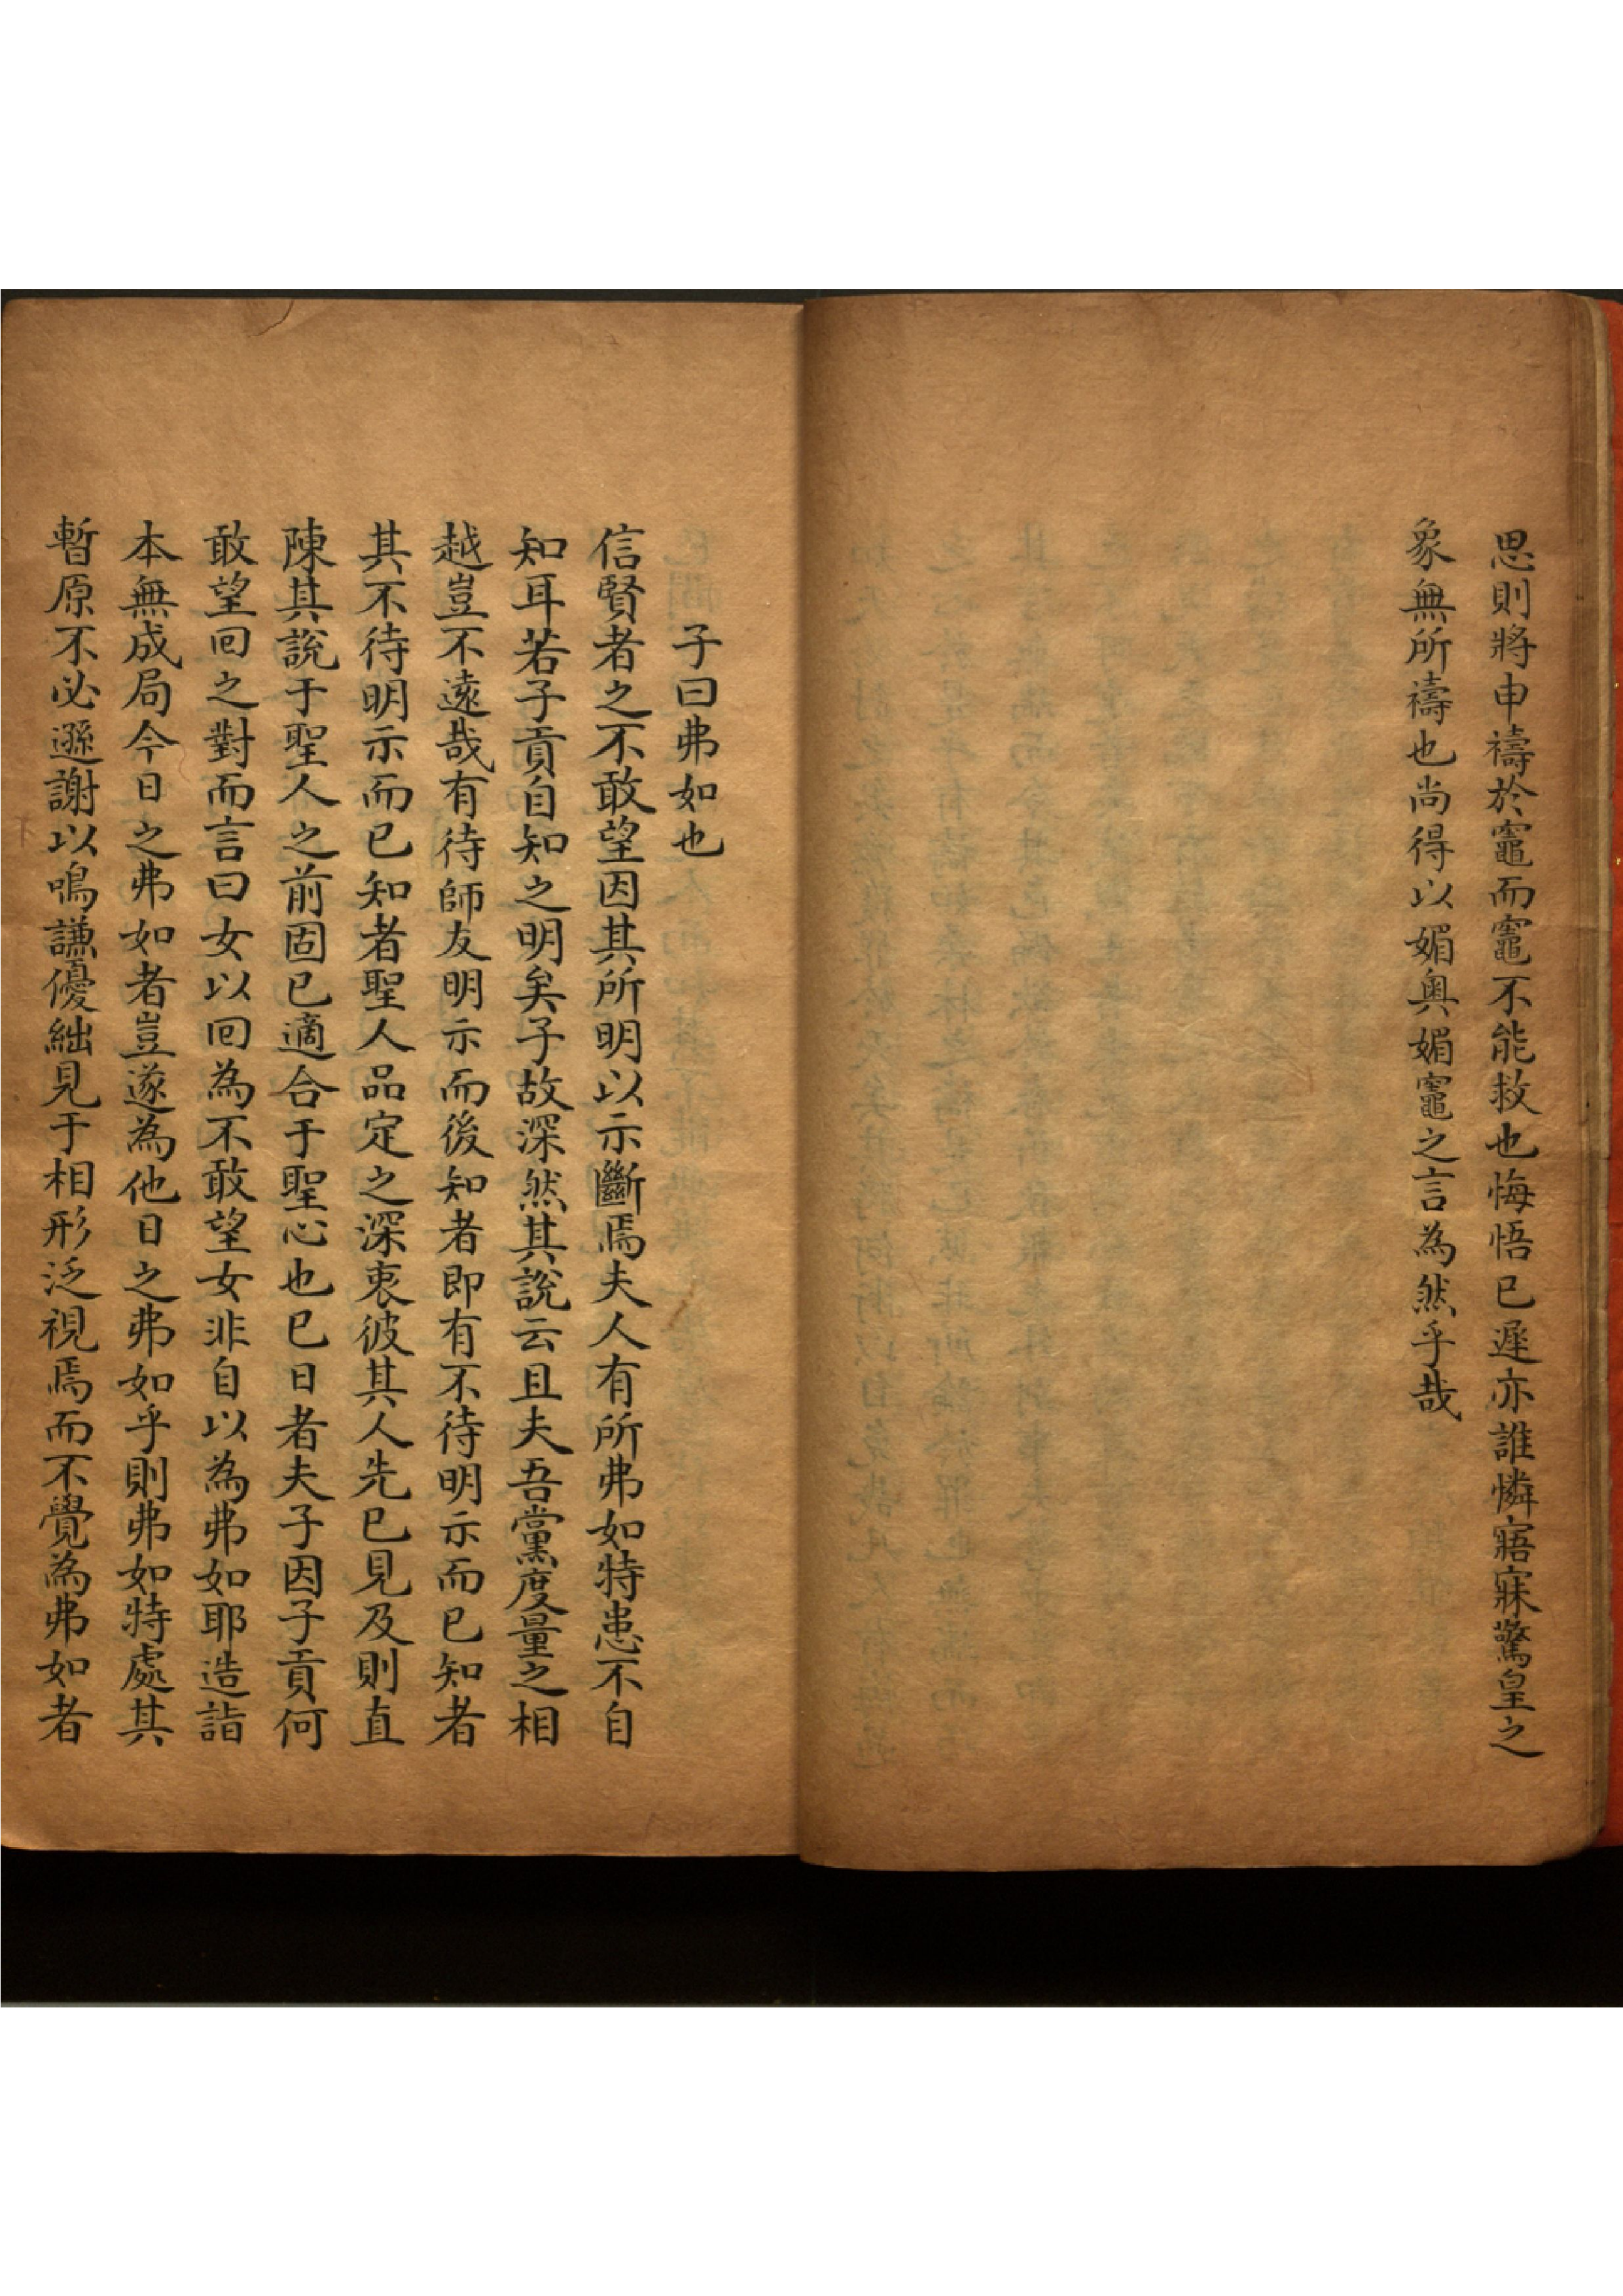 思則將申禱於竈而竈不能救也悔悟已遲亦誰憐寤寐驚皇之
象無所禱也尚得以媚奧媚竈之言為然乎哉
子曰弗如也
信賢者之不敢望因其所明以示斷焉夫人有所弗如特患不自
知耳若子貢自知之明矣子故深然其說云且夫吾黨度量之相
越豈不遠哉有待師友明示而後知者即有不待明示而已知者
其不待明示而已知者聖人品定之深衷彼其人先已見及則直
陳其說于聖人之前固已適合于聖心也已日者夫子因子貢何
敢望回之對而言曰女以回為不敢望女非自以為弗如耶造詣
本無成局今日之弗如者豈遂為他日之弗如乎則弗如特處其
暫原不必遜謝以鳴謙優絀見于相形泛視焉而不覺為弗如者